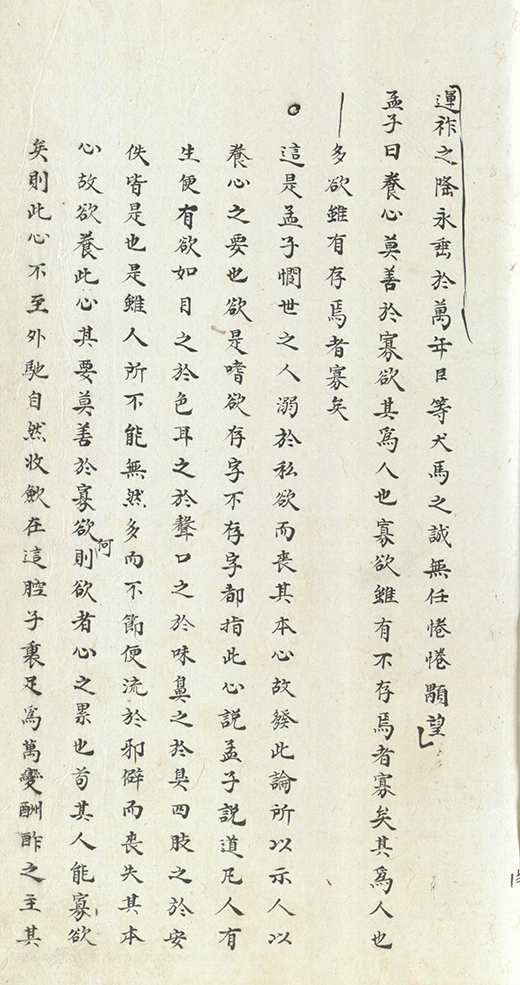 運祚之隆永垂於萬年臣等犬馬之誠無任惓惓顒望
孟子曰養心莫善於寡欲其爲人也寡欲雖有不存焉者寡矣其爲人也
多欲雖有存焉者寡矣
這是孟子憫世之人溺於私欲而喪其本心故發此論所以示人以
養心之要也欲是嗜欲存字不存字都指此心説孟子説道凡人有
生便有欲如目之於色耳之於聲口之於味鼻之於臭四肢之於安
佚皆是也是雖人所不能無然多而不節便流於邪僻而喪失其本
心故欲養此心其要莫善於寡欲則欲者心之累也苟其人能寡欲
阿
矣則此心不至外馳自然收歛在這腔子裏足爲萬變酬酢之主其